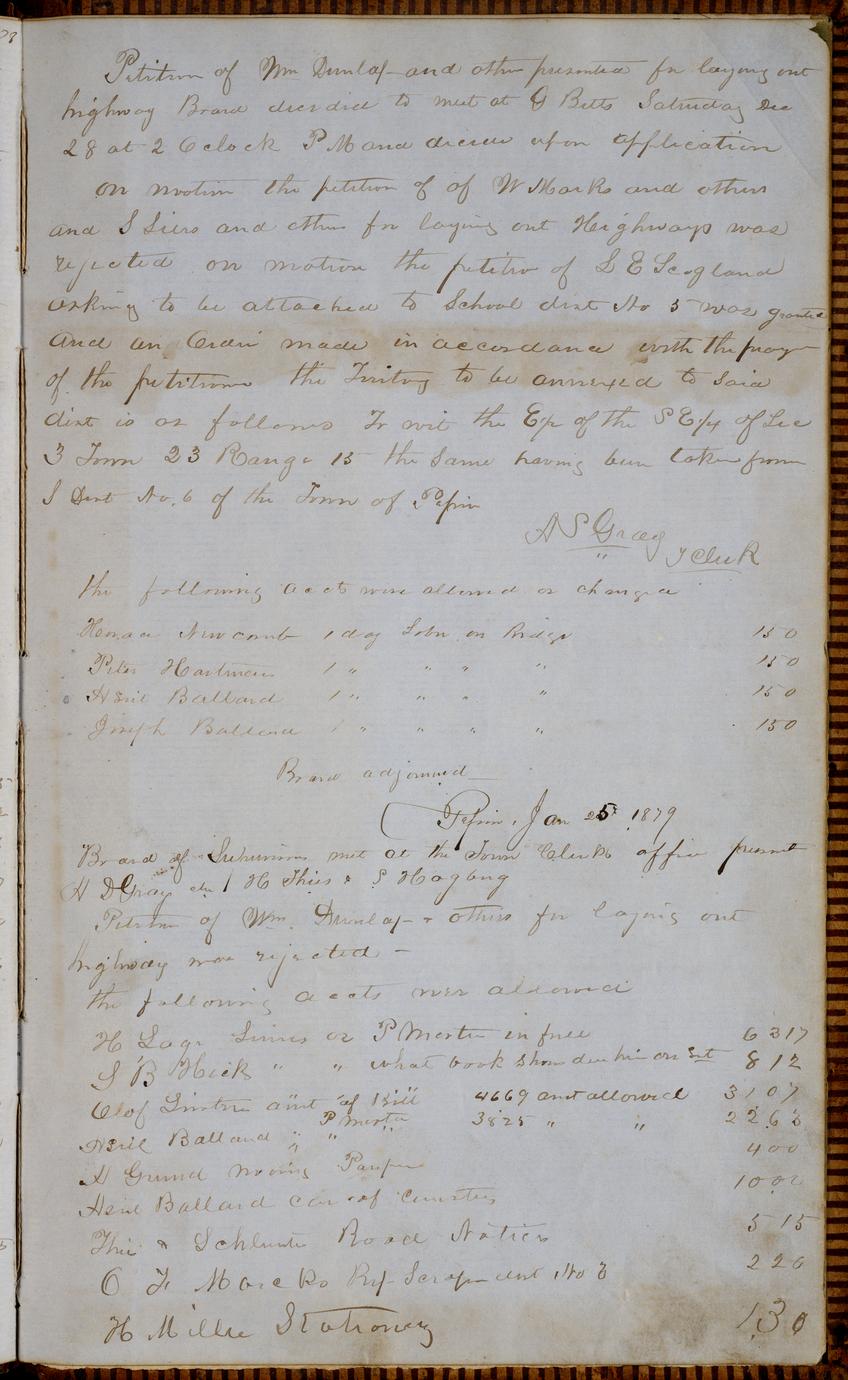 Petition of Wm Dunlap and others presented for laying out
highway Board decided to meet at G Betts Saturday Dec
28 at 2 Oclock P M and decide upon application
on motion the petition of of W Marks and others
and S Siers and others for laying out Heighways was
rejected on motion the petition of S E Scogland
asking to be attached to School dist No 5 was granted
and an Order made in accordance with the prayer
of the petitioner the Territory to be annexed to said
dist is as follows To wit the E½ of the S E¼ of Sec
3 Town 23 Range 15 the same having been taken from
S Dist No. 6 of the Town of Pepin
A S Gray
T Clerk
the following accts were allowed or charged
Horace Newcomb 1 day Labor on Bridge 150
Peter Hartman 1 " " " " 150
Asail Ballard 1 " " " " 150
Joseph Ballard 1 " " " " 150
Board adjourned
Pepin, Jan 25 1879
Board of Supervisors met at the Town Clerks office present
A D Gray H Thies & S Hagburg
Petition of Wm. Dunlap & others for laying out
highway was rejected –
the following accts were allowed
H Lage Seniors or P Master in full 6317
S B Hick " " what book shows due him on Set 812
Olof Linstrom amt of Bill 4669 amt allowed 3107
Asail Ballard " " P Master 3825 " " 2263
A Grund moving Pauper 400
Asail Ballard care of Cemetery 1000
Thies & Schlunts Road Notices 515
O F Marcks Rep Scraper dist No 3 220
H Miller Stationery 130